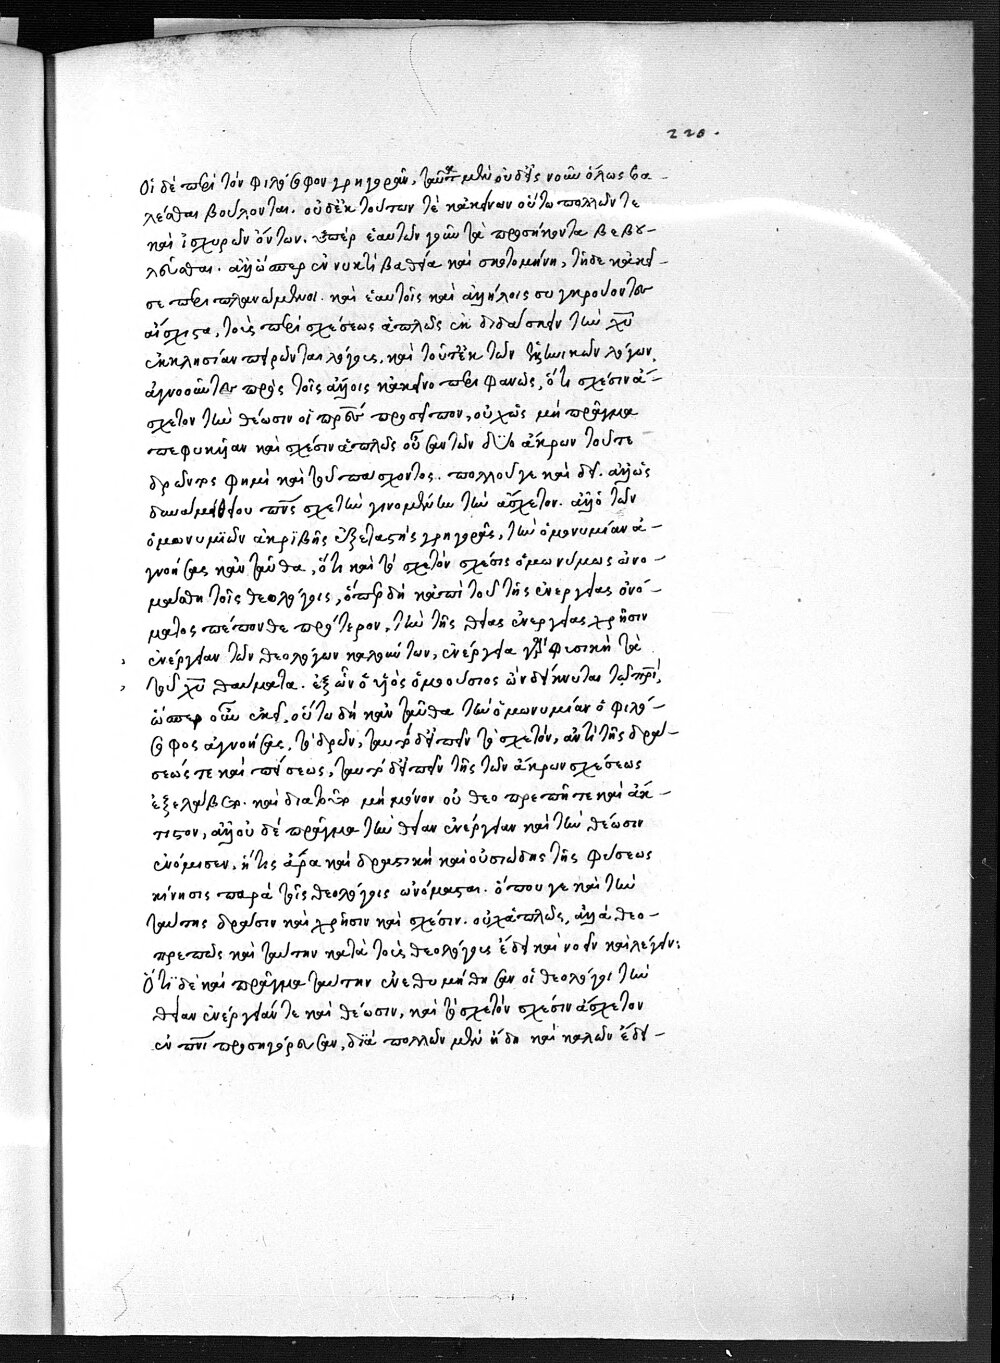 220.
Οἱ δὲ περὶ τὸν φιλόσοφον γρηγορᾶν, ταῦτα μὲν οὐδ' εἰς νοῦν ὅλως βα-
λέσθαι βούλονται. οὐδ' ἐκ τούτων τὲ κἀκείνων οὕτω πολλῶν τε
καὶ ἰσχυρῶν ὄντων. ὑπὲρ ἑαυτῶν γοῦν τὰ προσήκοντα βεβου-
λεῦσθαι. ἀλλ' ὥσπερ ἐν νυκτὶ βαθεία καὶ σκοτομήνη, τῆδε κἀκεῖ-
σε περιπλανώμενοι. καὶ ἑαυτοῖς καὶ ἀλλήλοις συγκρούοντες
αἴσχιστα, τοὺς περὶ σχέσεως ἁπλῶς ἐκδιδάσκειν τὴν χῦ
ἐκκλησίαν πειρῶνται λόγους. καὶ τοῦτ' ἐκ τῶν λόγων,
ἀγνοοῦντες πρὸς τοῖς ἄλλοις κἀκεῖνο περιφανῶς, ὅτι σχέσιν ἄ-
σχετον τὴν θέωσιν οἱ πρες προσεῖπον, οὐχ ὡς μὴ πρᾶγμα
πεφυκῆαν καὶ σχέσιν ἁπλῶς οὖσαν τῶν δύο ἄκρων τοῦτε
δρῶντος φημὶ καὶ τοῦ πάσχοντος. πολλοῦ γε καὶ δεῖ. ἀλλ' ὡς
δυναμένου σχετὴν γινομένην τὴν ἄσχετον. ἀλλ' ὁ τῶν
ὁμωνυμιῶν ἀκριβὴς ἐξεταστὴς γρηγορᾶς, τὴν ὁμωνυμίαν ἀ-
γνοήσας κἀνταῦθα, ὅτι καὶ τὸ σχετὸν σχέσις ὁμωνύμως ὠνο-
μάσθη τοῖς θεολόγοις, ὅπερ δὴ κἀπὶ τοῦ τῆς ἐνεργείας ὀνό-
ματος πέπονθε πρότερον, τὴν τῆς θείας ἐνεργείας χρῆσιν
ἐνέργειαν τῶν θεολόγων καλούντων, ἐνέργεια γὰρ φυσικὴ τὰ
τοῦ χῦ θαύματα. ἐξ ὧν ὁ υἱὸς ὁμοούσιος ὢν δείκνυται τῶ πρὶ,
ὥσπερ οὖν ἐκεῖ, οὕτω δὴ κἀνταῦθα τὴν ὁμωνυμίαν ὁ φιλό-
σοφος ἀγνοήσας, τὸ δρῶν, ταυτὸ δ' εἰπεῖν τὸ σχετόν, ἀντὶ τῆς δρά-
σεώς τε καὶ πείσεως, ταυτὸ δ' εἰπεῖν τῆς τῶν ἄκρων σχέσεως
ἐξέλαβεν. καὶ διὰ τοῦτο μὴ μόνον οὐ θεοπρεπῆ τε καὶ ἄκ-
τιστον, ἀλλ' οὐδὲ πρᾶγμα τὴν θείαν ἐνέργειαν καὶ τὴν θέωσιν
ἐνόμισεν, ἥτις ἄρα καὶ δραστικὴ καὶ οὐσιώδης τῆς φύσεως
κίνησις παρὰ τοῖς θεολόγοις ὠνόμασται. ὅπου γε καὶ τὴν
ταύτης δρᾶσιν καὶ χρῆσιν καὶ σχέσιν. οὐχ ἁπλῶς, ἀλλὰ θεο-
πρεπῶς καὶ ταύτην κατὰ τοὺς θεολόγους ἔδει καὶ νοεῖν καὶ λέγειν:
Ὅτι δὲ καὶ πρᾶγμα ταύτην ἐνεθυμήθησαν οἱ θεολόγοι τὴν
θείαν ἐνέργειάν τε καὶ θέωσιν, καὶ τὸ σχετὸν σχέσιν ἄσχετον
ἐν πνι προσηγόρευσαν, διὰ πολλῶν μὲν ἤδη καὶ καλῶν ἐδεί-